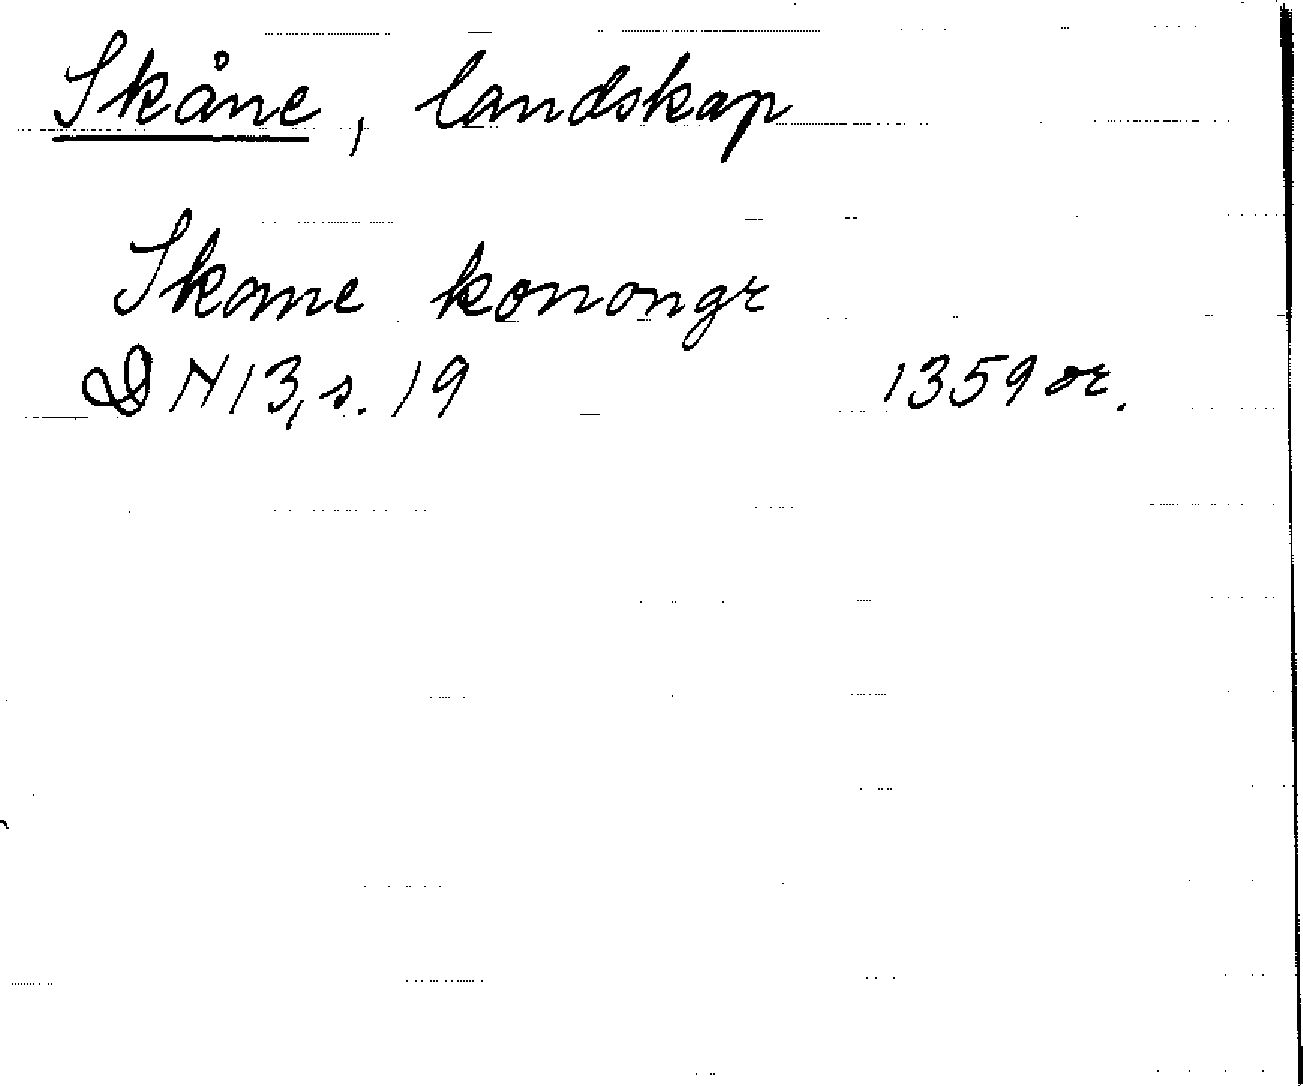 Skåne, landskap
Skane konongr
DN 13, s. 19 1359 or.